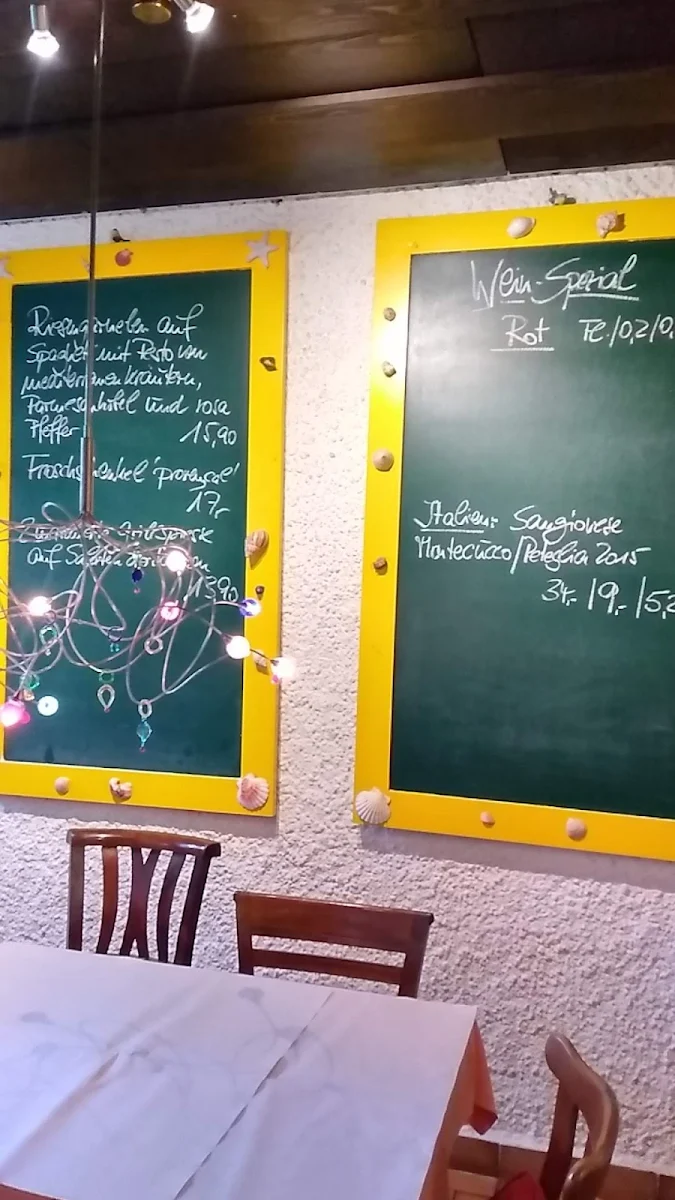 Riesengarnelen auf
Spaghetti mit Pesto von
mediterranen Kräutern,
Parmesanhobel und rosa
Pfeffer 15,90
Froschschenkel 'provençal'
17,-
auf Salat
13,90
Wein-Spezial
Rot Fl/0,2/0,
Italien: Sangiovese
Montecucco/Peteglia 2015
34,- /9,- /5,2